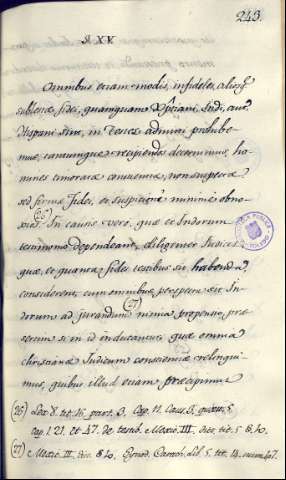 243.
§ XV
Omnibus etiam modis, infideles, aliosq.
sublestæ fidei, quamquam Xptiani sint, aut
Hispani sint, in testes admitti prohibe-
mus, tantumque recipiendos decernimus, ho-
mines timoratæ conscientiæ, non suspectæ
sed firmæ fidei, et suspitioni minimè obno-
xios. (26) In causis vero, quæ ex Indorum
testimonio dependeant, diligenter Judices
quæ, et quanta fides testibus sit habenda
considerent, cum omnibus perspecta sit In-
dorum ad jurandum nimia propensio, præ-
sertim si in id inducantur: quæ omnia (27)
christianæ Judicum conscientiæ relinqui-
mus, quibus illud etiam præcipimus
(26) Lex 8. tit. 16. part. 3. Cap. 11. Caus. 3. quæst. 5.
cap. 1. 21. et 47. de testib. Mexic. III. dic. tit. 5. § 10.
(27) Mexic. III. dic. § 10. Synod. lib. 5. tit. 14. num. 47.